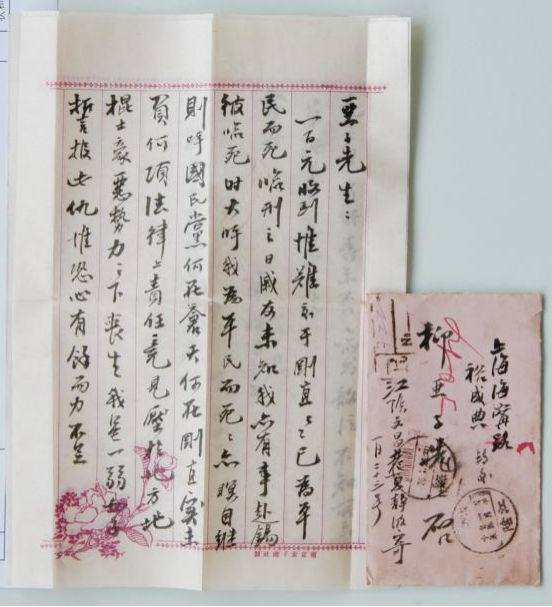 亚子先生：
一百元临到惟难言于刚直之已为平
民而死临刑之日戚友未知我亦有事赴锡
彼临死时大呼我为平民而死亦瞑目继
则呼国民党何在苍天何在刚直实未
负何项法律上责任竟见压于地方地
棍土豪恶势力之下丧生我是一弱女子
誓报此仇惟恐心有余而力不足
上海海宁路
裕盛典
柳亚子先生 启
江阴
夏静波寄
一月二十二号